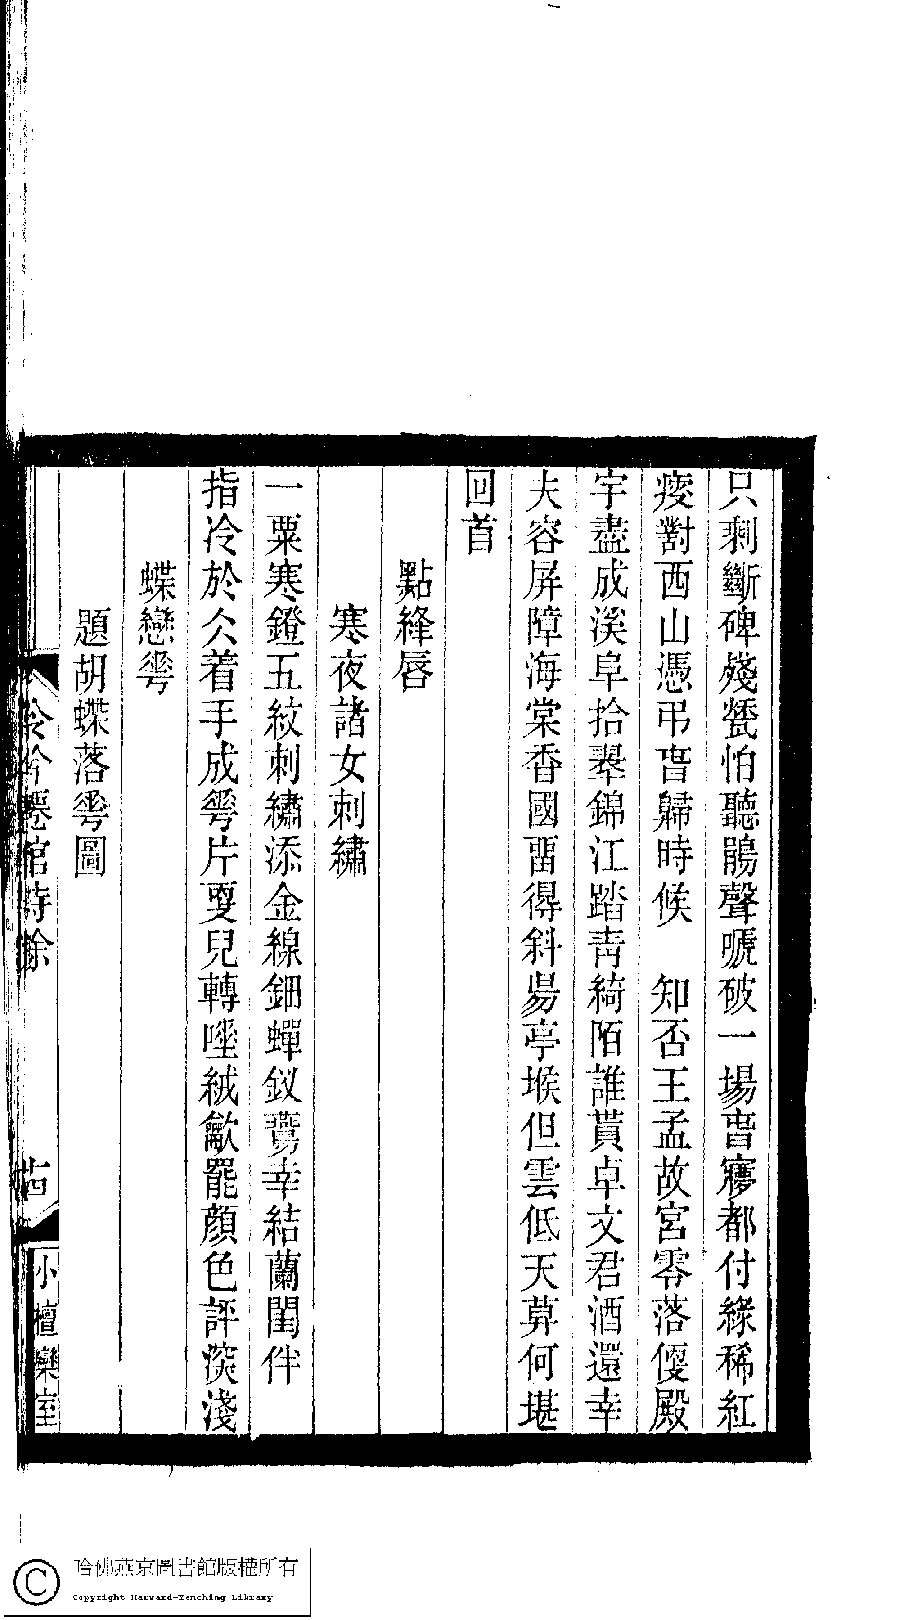 只剩斷碑殘甃怕聽鵑聲嗁破一場舊㝱都付綠稀紅
痠對西山憑弔舊歸時候　知否王孟故宮零落便殿
宇盡成溪阜拾翠錦江踏靑綺陌誰貰卓文君酒還幸
夫容屏障海棠香國畱得斜昜亭堠但雲低天莫何堪
回首
點絳唇
寒夜諸女刺繡
一粟寒鐙五紋刺繡添金線鈿蟬釵鷰幸結蘭閨伴
指冷於仌着手成㗾片耎兒轉唾絨歛罷顏色評深淺
蝶戀㗾
題胡蝶落㗾圖
館詩餘
小檀欒室
哈佛燕京圖書館版權所有
Copyright Harvard-Yenching Library